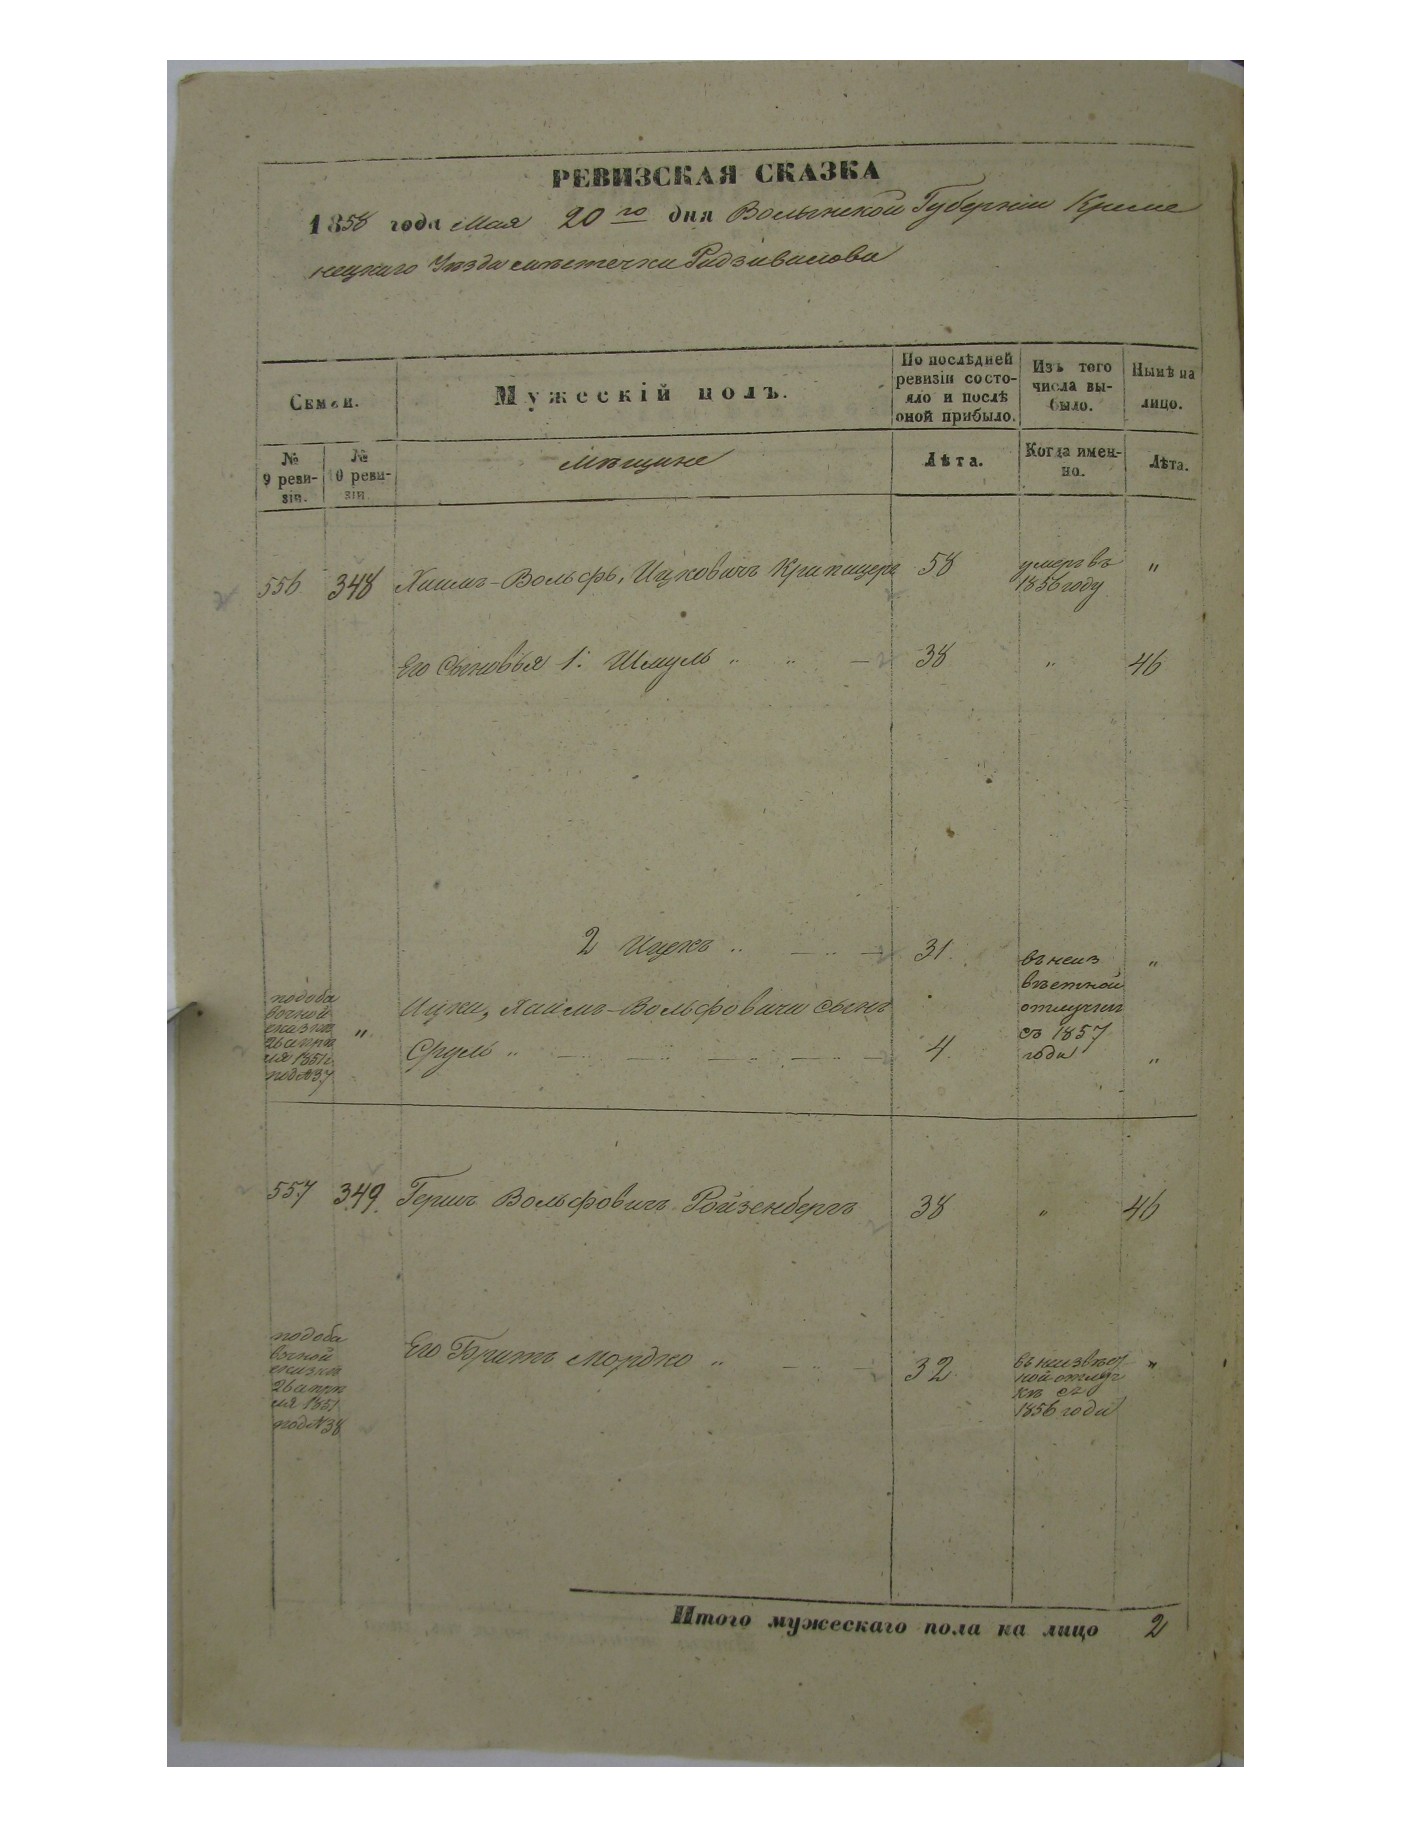 РЕВИЗСКАЯ СКАЗКА
1858 года Мая 20го дня Волынской Губернии Креме
нецкаго Уезда местечка Радзивилова
Семьи.
Мужескій полъ.
По послѣдней ревизіи состо-
яло и послѣ
оной прибыло.
Изъ того
числа вы-
было.
Нынѣ на
лицо.
№
9 реви-
зіи.
№
10 реви-
зіи.
мѣщане
Лѣта.
Когда имен-
но.
Лѣта.
556 348 Хаимъ-Вольфъ, Ицковичъ 58 умеръ въ
1856 году "
Его Сыновья 1: Шмуль " " — 38 " 46
2 Ицекъ " — " — 31
въ неиз
вѣстной
отлучки
съ 1857
года
"
Ицки, Хаимъ-Вольфовича сынъ
подоба
вочной
сказки
26 апре
ля 1851 г.
под №37
"
Сруль " 4 "
557 349 Гершъ Вольфовичъ Ройзенбергъ 38 " 46
подоба
вочной
сказки
26 апре
ля 1851
под №38
Его Братъ Мордко " — " — 32
въ неизвѣст
ной отлуч
кѣ съ
1856 года
"
Итого мужескаго пола на лицо 2